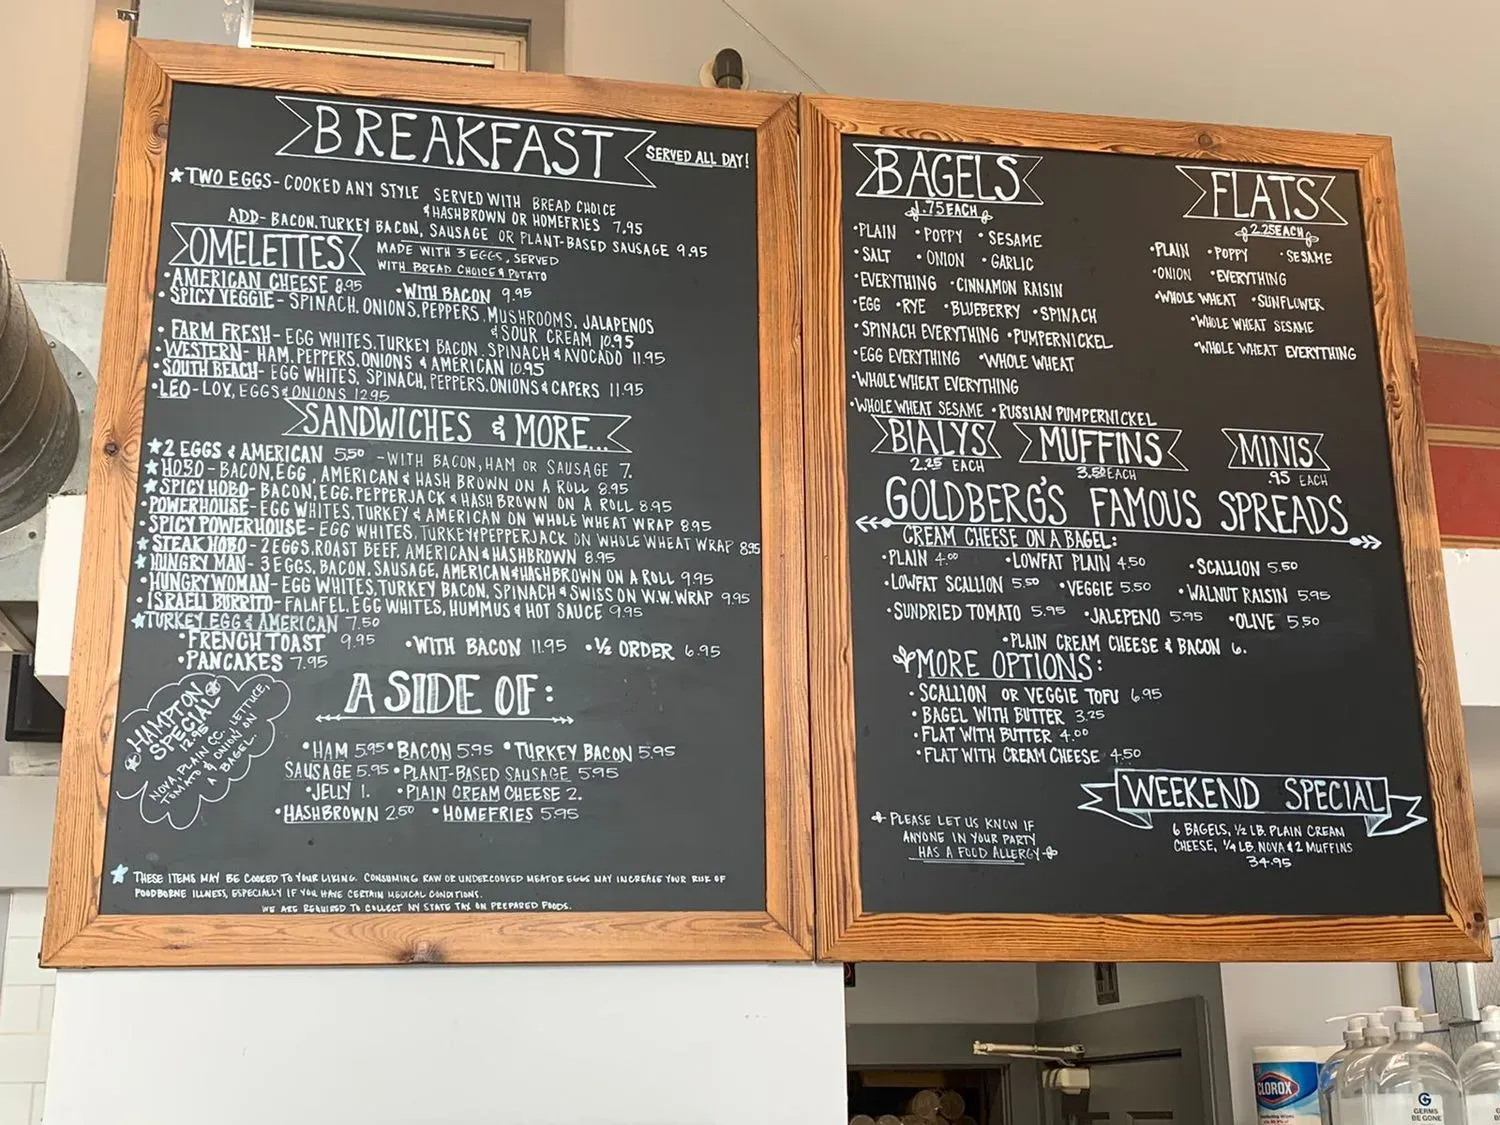 BREAKFAST
SERVED ALL DAY!
★ TWO EGGS - COOKED ANY STYLE SERVED WITH BREAD CHOICE
& HASHBROWN OR HOMEFRIES 7.95
ADD - BACON, TURKEY BACON, SAUSAGE OR PLANT-BASED SAUSAGE 9.95
OMELETTES
MADE WITH 3 EGGS, SERVED
WITH BREAD CHOICE & POTATO
•AMERICAN CHEESE 8.95 •WITH BACON 9.95
•SPICY VEGGIE - SPINACH, ONIONS, PEPPERS, MUSHROOMS, JALAPENOS
& SOUR CREAM 10.95
•FARM FRESH - EGG WHITES, TURKEY BACON, SPINACH & AVOCADO 11.95
•WESTERN - HAM, PEPPERS, ONIONS & AMERICAN 10.95
•SOUTH BEACH - EGG WHITES, SPINACH, PEPPERS, ONIONS & CAPERS 11.95
•LEO - LOX, EGGS & ONIONS 12.95
SANDWICHES & MORE...
★2 EGGS & AMERICAN 5.50 - WITH BACON, HAM OR SAUSAGE 7.
★HOBO - BACON, EGG, AMERICAN & HASH BROWN ON A ROLL 8.95
★SPICY HOBO - BACON, EGG, PEPPERJACK & HASH BROWN ON A ROLL 8.95
•POWERHOUSE - EGG WHITES, TURKEY & AMERICAN ON WHOLE WHEAT WRAP 8.95
•SPICY POWERHOUSE - EGG WHITES, TURKEY & PEPPERJACK ON WHOLE WHEAT WRAP 8.95
★STEAK HOBO - 2 EGGS, ROAST BEEF, AMERICAN & HASHBROWN 8.95
★HUNGRY MAN - 3 EGGS, BACON, SAUSAGE, AMERICAN & HASHBROWN ON A ROLL 9.95
•HUNGRY WOMAN - EGG WHITES, TURKEY BACON, SPINACH & SWISS ON W.W. WRAP 9.95
•ISRAELI BURRITO - FALAFEL, EGG WHITES, HUMMUS & HOT SAUCE 9.95
★TURKEY EGG & AMERICAN 7.50
•FRENCH TOAST 9.95 •WITH BACON 11.95 •½ ORDER 6.95
•PANCAKES 7.95
HAMPTON
SPECIAL
12.95
NOVA, PLAIN CC, LETTUCE,
TOMATO & ONION ON
A BAGEL.
A SIDE OF:
•HAM 5.95 •BACON 5.95 •TURKEY BACON 5.95
SAUSAGE 5.95 •PLANT-BASED SAUSAGE 5.95
•JELLY 1. •PLAIN CREAM CHEESE 2.
•HASHBROWN 2.50 •HOMEFRIES 5.95
★ THESE ITEMS MAY BE COOKED TO YOUR LIKING. CONSUMING RAW OR UNDERCOOKED MEAT OR EGGS MAY INCREASE YOUR RISK OF
FOODBORNE ILLNESS, ESPECIALLY IF YOU HAVE CERTAIN MEDICAL CONDITIONS.
WE ARE REQUIRED TO COLLECT NY STATE TAX ON PREPARED FOODS.
BAGELS
1.75 EACH
•PLAIN •POPPY •SESAME
•SALT •ONION •GARLIC
•EVERYTHING •CINNAMON RAISIN
•EGG •RYE •BLUEBERRY •SPINACH
•SPINACH EVERYTHING •PUMPERNICKEL
•EGG EVERYTHING •WHOLE WHEAT
•WHOLE WHEAT EVERYTHING
•WHOLE WHEAT SESAME •RUSSIAN PUMPERNICKEL
FLATS
2.25 EACH
•PLAIN •POPPY •SESAME
•ONION •EVERYTHING
•WHOLE WHEAT •SUNFLOWER
•WHOLE WHEAT SESAME
•WHOLE WHEAT EVERYTHING
BIALYS
2.25 EACH
MUFFINS
3.50 EACH
MINIS
.95 EACH
GOLDBERG'S FAMOUS SPREADS
CREAM CHEESE ON A BAGEL:
•PLAIN 4.00 •LOWFAT PLAIN 4.50 •SCALLION 5.50
•LOWFAT SCALLION 5.50 •VEGGIE 5.50 •WALNUT RAISIN 5.95
•SUNDRIED TOMATO 5.95 •JALEPENO 5.95 •OLIVE 5.50
•PLAIN CREAM CHEESE & BACON 6.
MORE OPTIONS:
•SCALLION OR VEGGIE TOFU 6.95
•BAGEL WITH BUTTER 3.25
•FLAT WITH BUTTER 4.00
•FLAT WITH CREAM CHEESE 4.50
WEEKEND SPECIAL
6 BAGELS, ½ LB. PLAIN CREAM
CHEESE, ¼ LB. NOVA & 2 MUFFINS
34.95
PLEASE LET US KNOW IF
ANYONE IN YOUR PARTY
HAS A FOOD ALLERGY
CLOROX
GERMS
BE GONE